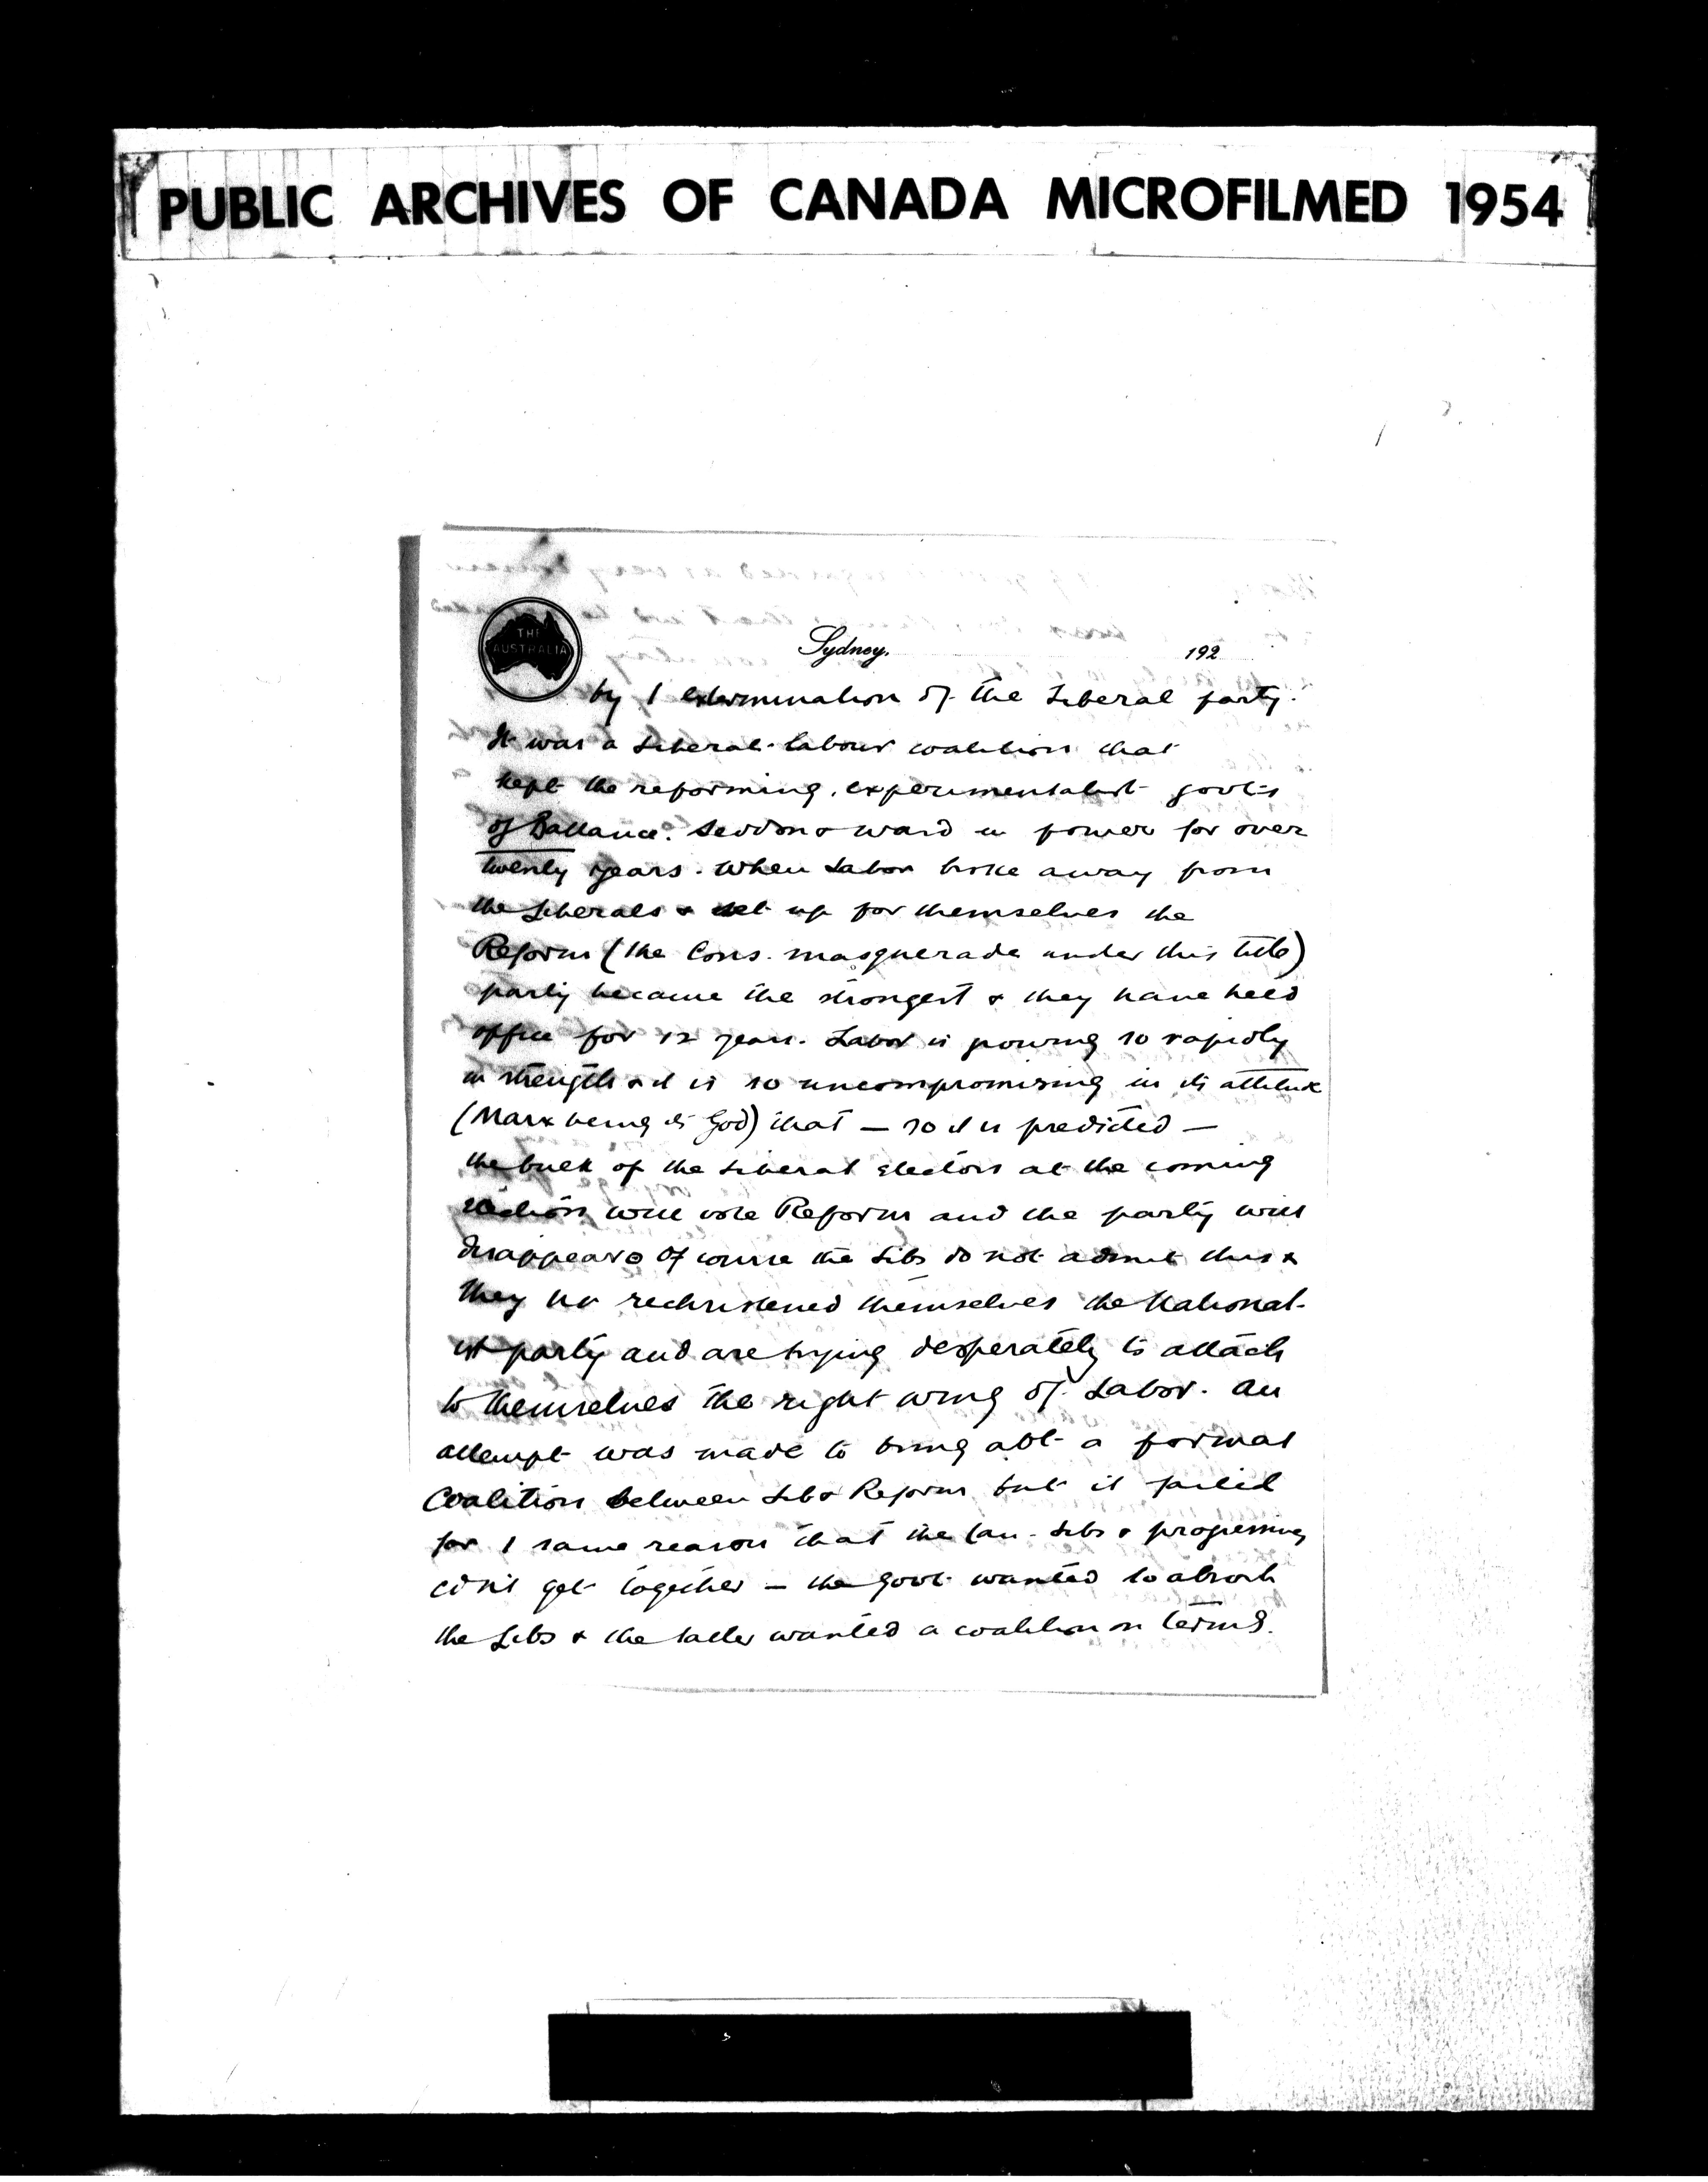 PUBLIC ARCHIVES OF CANADA MICROFILMED 1954
THE
AUSTRALIA
Sydney, 192
by / extermination of the Liberal party.
It was a Liberal-labour coalition that
kept the reforming, experimentalist govts
of Ballance. Seddon & Ward in power for over
twenty years. When Labor broke away from
the Liberals & set up for themselves the
Reform (the Cons. masquerade under this title)
party became the strongest & they have held
office for 12 years. Labor is growing so rapidly
in strength & it is so uncompromising in its attitude
(Marx being its God) that — so it is predicted —
the bulk of the Liberal electors at the coming
election will vote Reform and the party will
disappear. Of course the Libs do not admit this &
they hv rechristened themselves the National-
ist party and are trying desperately to attach
to themselves the right wing of Labor. An
attempt was made to bring abt a formal
Coalition between Lib & Reform but it failed
for / same reason that the Can. Libs & progressives
cdn't get together — the govt wanted to absorb
the Libs & the latter wanted a coalition on terms.